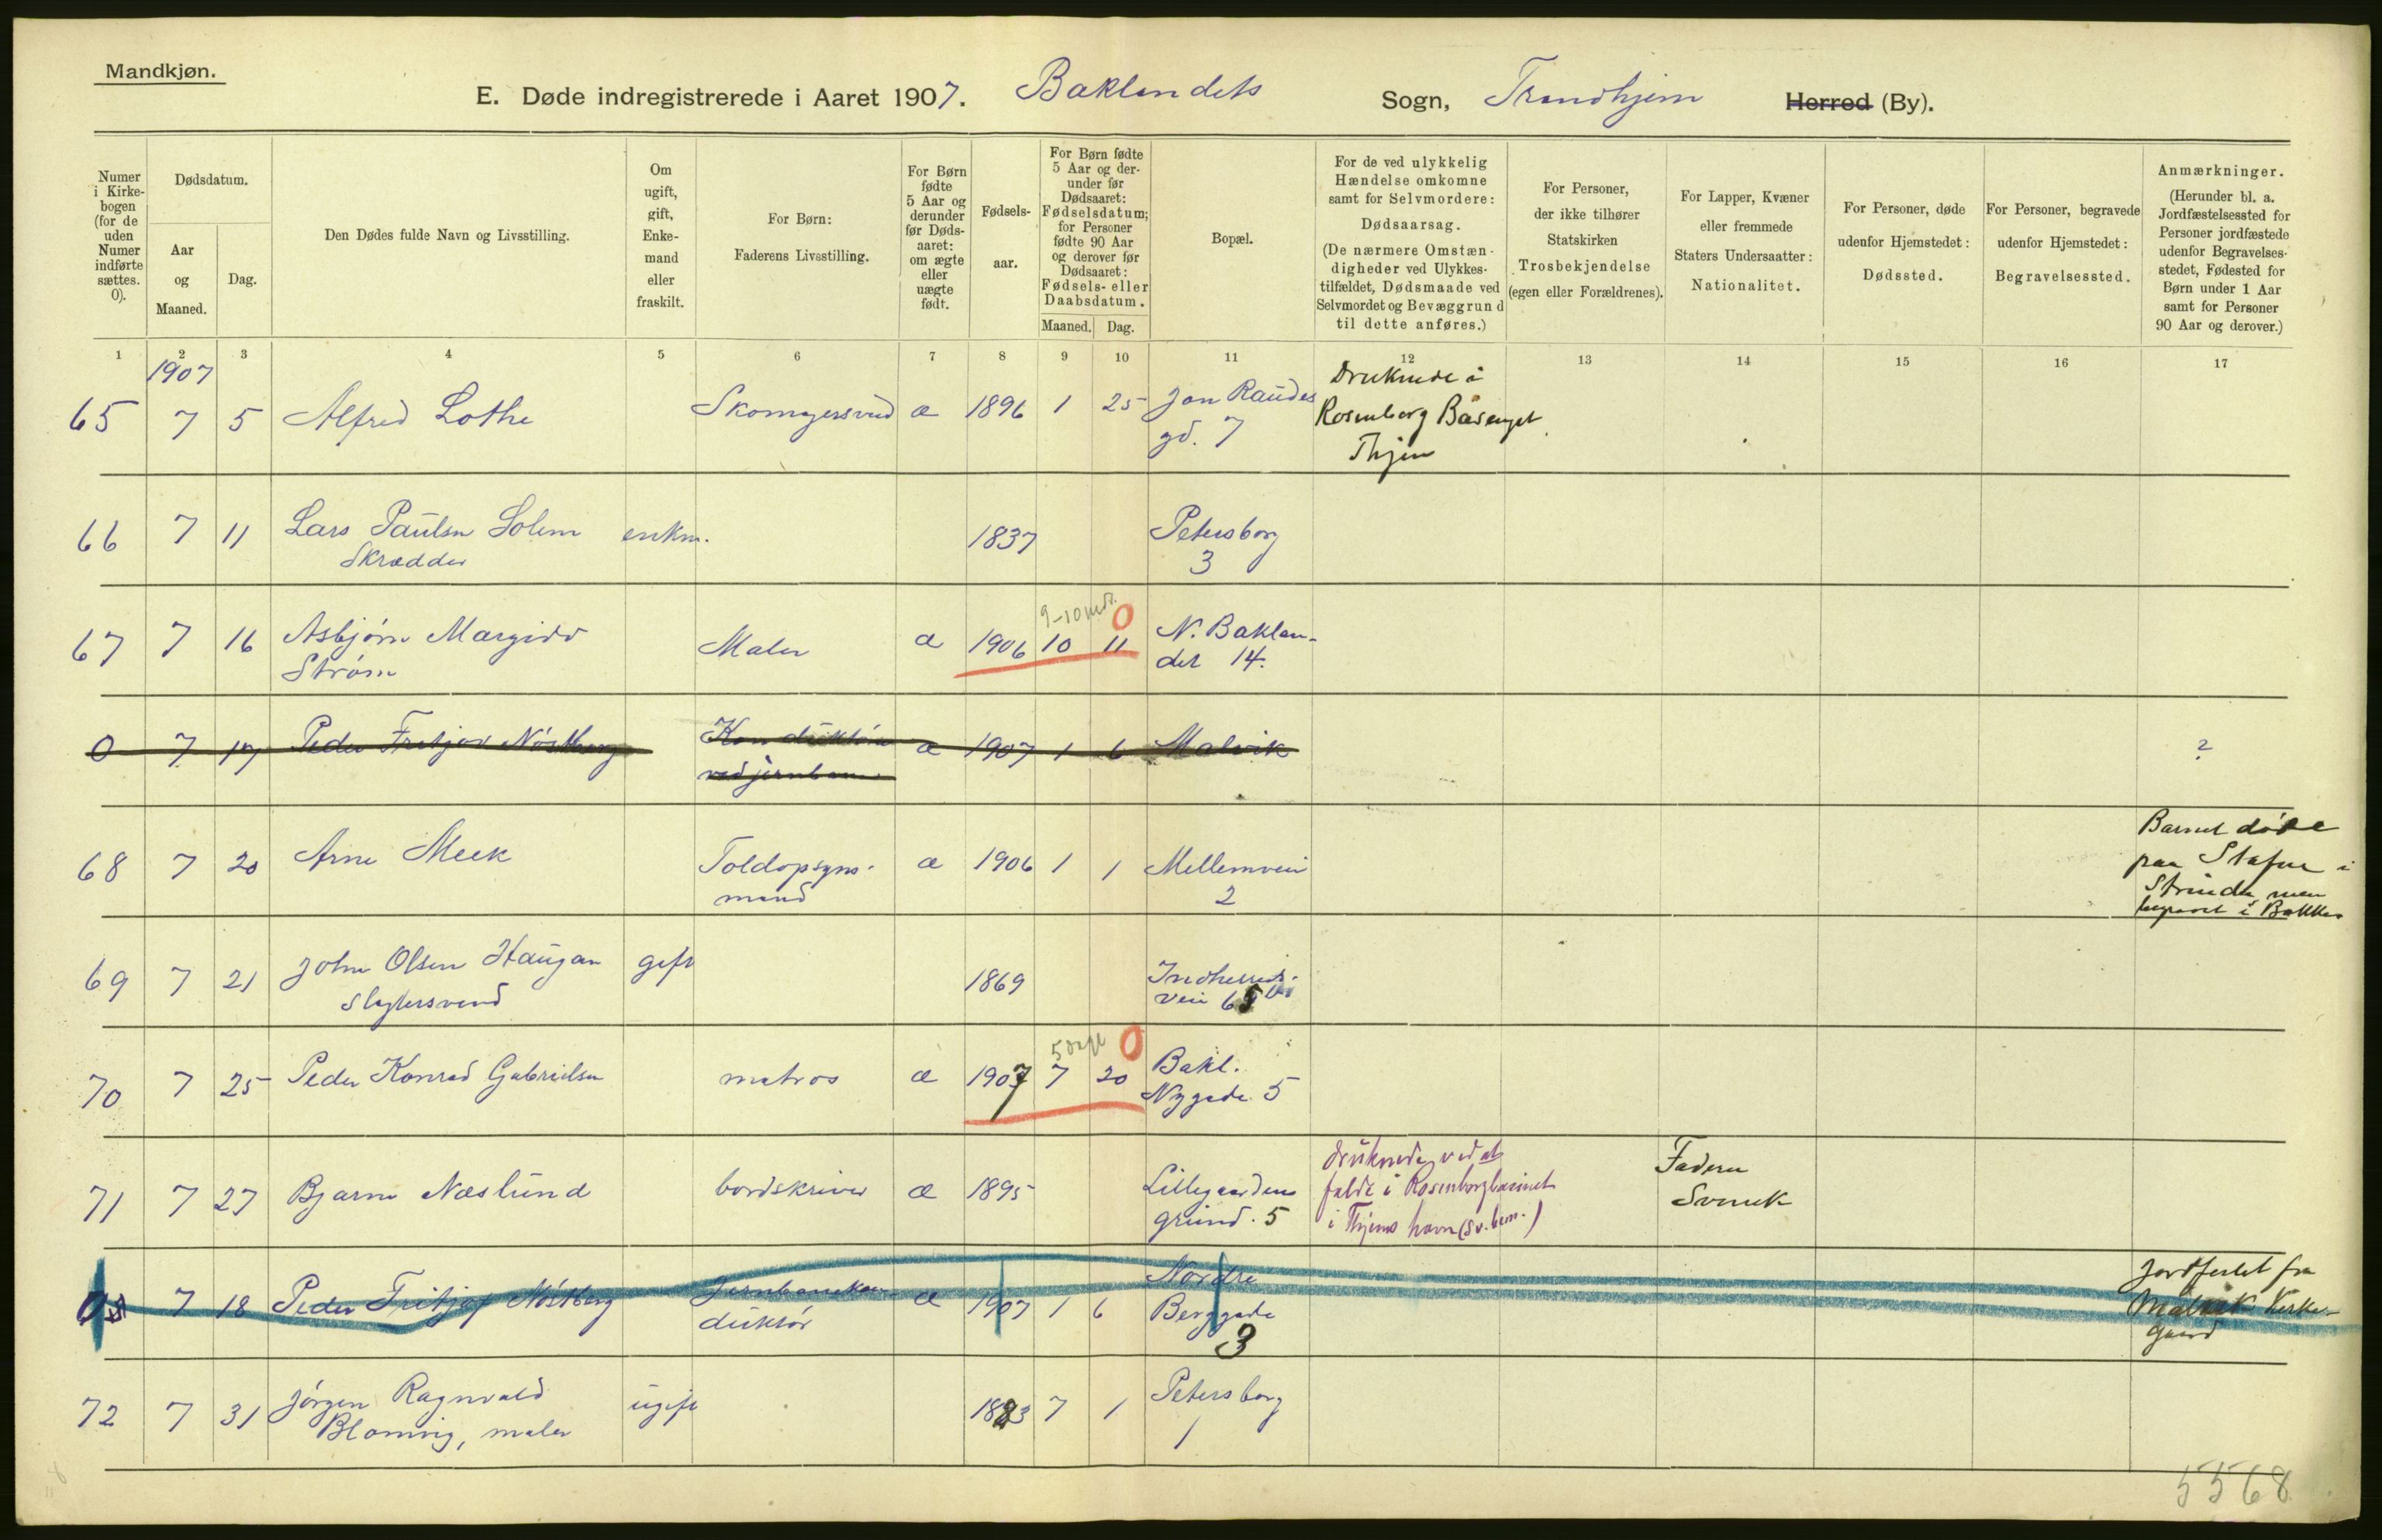 Mandkjøn.
E. Døde indregistrerede i Aaret 1907. Baklandets Sogn, Trondhjem Herred (By).
Numer
i Kirke-
bogen
(for de
uden
Numer
indførte
sættes.
0).
Dødsdatum.
Aar
og
Maaned.
Dag.
Den Dødes fulde Navn og Livsstilling.
Om
ugift,
gift,
Enke-
mand
eller
fraskilt.
For Børn:
Faderens Livsstilling.
For Børn
fødte
5 Aar og
derunder
før Døds-
aaret:
om ægte
eller
uægte
født.
Fødsels-
aar.
For Børn fødte
5 Aar og der-
under før
Dødsaaret:
Fødselsdatum;
for Personer
fødte 90 Aar
og derover før
Dødsaaret:
Fødsels- eller
Daabsdatum.
Maaned. Dag.
Bopæl.
For de ved ulykkelig
Hændelse omkomne
samt for Selvmordere:
Dødsaarsag.
(De nærmere Omstæn-
digheder ved Ulykkes-
tilfældet, Dødsmaade ved
Selvmordet og Bevæggrund
til dette anføres.)
For Personer,
der ikke tilhører
Statskirken
Trosbekjendelse
(egen eller Forældrenes).
For Lapper, Kvæner
eller fremmede
Staters Undersaatter:
Nationalitet.
For Personer, døde
udenfor Hjemstedet:
Dødssted.
For Personer, begravede
udenfor Hjemstedet:
Begravelsessted.
Anmærkninger.
(Herunder bl. a.
Jordfæstelsessted for
Personer jordfæstede
udenfor Begravelses-
stedet, Fødested for
Børn under 1 Aar
samt for Personer
90 Aar og derover.)
1 2 3 4 5 6 7 8 9 10 11 12 13 14 15 16 17
1907
65 7 5 Alfred Lothe Skomagersvend æ 1896 1 25 Jon Raudes
gd. 7
Druknede i
Rosenborg Basenget
Thjem
66 7 11 Lars Paulsen Solem enkm. 1837 Petersborg
Skrædder 3
9-10 mdr. 0
67 7 16 Asbjørn Margido Maler æ 1906 10 11 N. Baklan-
Strøm det 14.
0 7 17 Peder Fritjov Nøstberg Konduktør æ 1907 1 6 Malvik ?
ved jernban.
68 7 20 Arne Meek Toldopsyns- æ 1906 1 1 Mellemveien
mand 2
Barnet døde
paa Stafne i
Strinda men
begravet i Bakke
69 7 21 John Olsen Haugan gift 1869 Indherreds-
Slagtersvend vei 65
5 dage 0
70 7 25 Peder Konrad Gabrielsen matros æ 1907 7 20 Bakl.
Nygade 5
71 7 27 Bjarne Næslund bordskriver æ 1895 Lillegaardens
grund. 5
druknede, ved at
falde i Rosenborgbasinet
i Thjems havn (Sv. bem.)
Faderen
Svensk
0 7 18 Peder Fritjof Nøstberg Jernbanekon- æ 1907 1 6 Nordre
duktør Berggade
3
Jordfestet fra
Malvik Kirke-
gaard
72 7 31 Jørgen Ragnvald ugift 1883 7 1 Petersborg
Blomvig, maler 1
5568